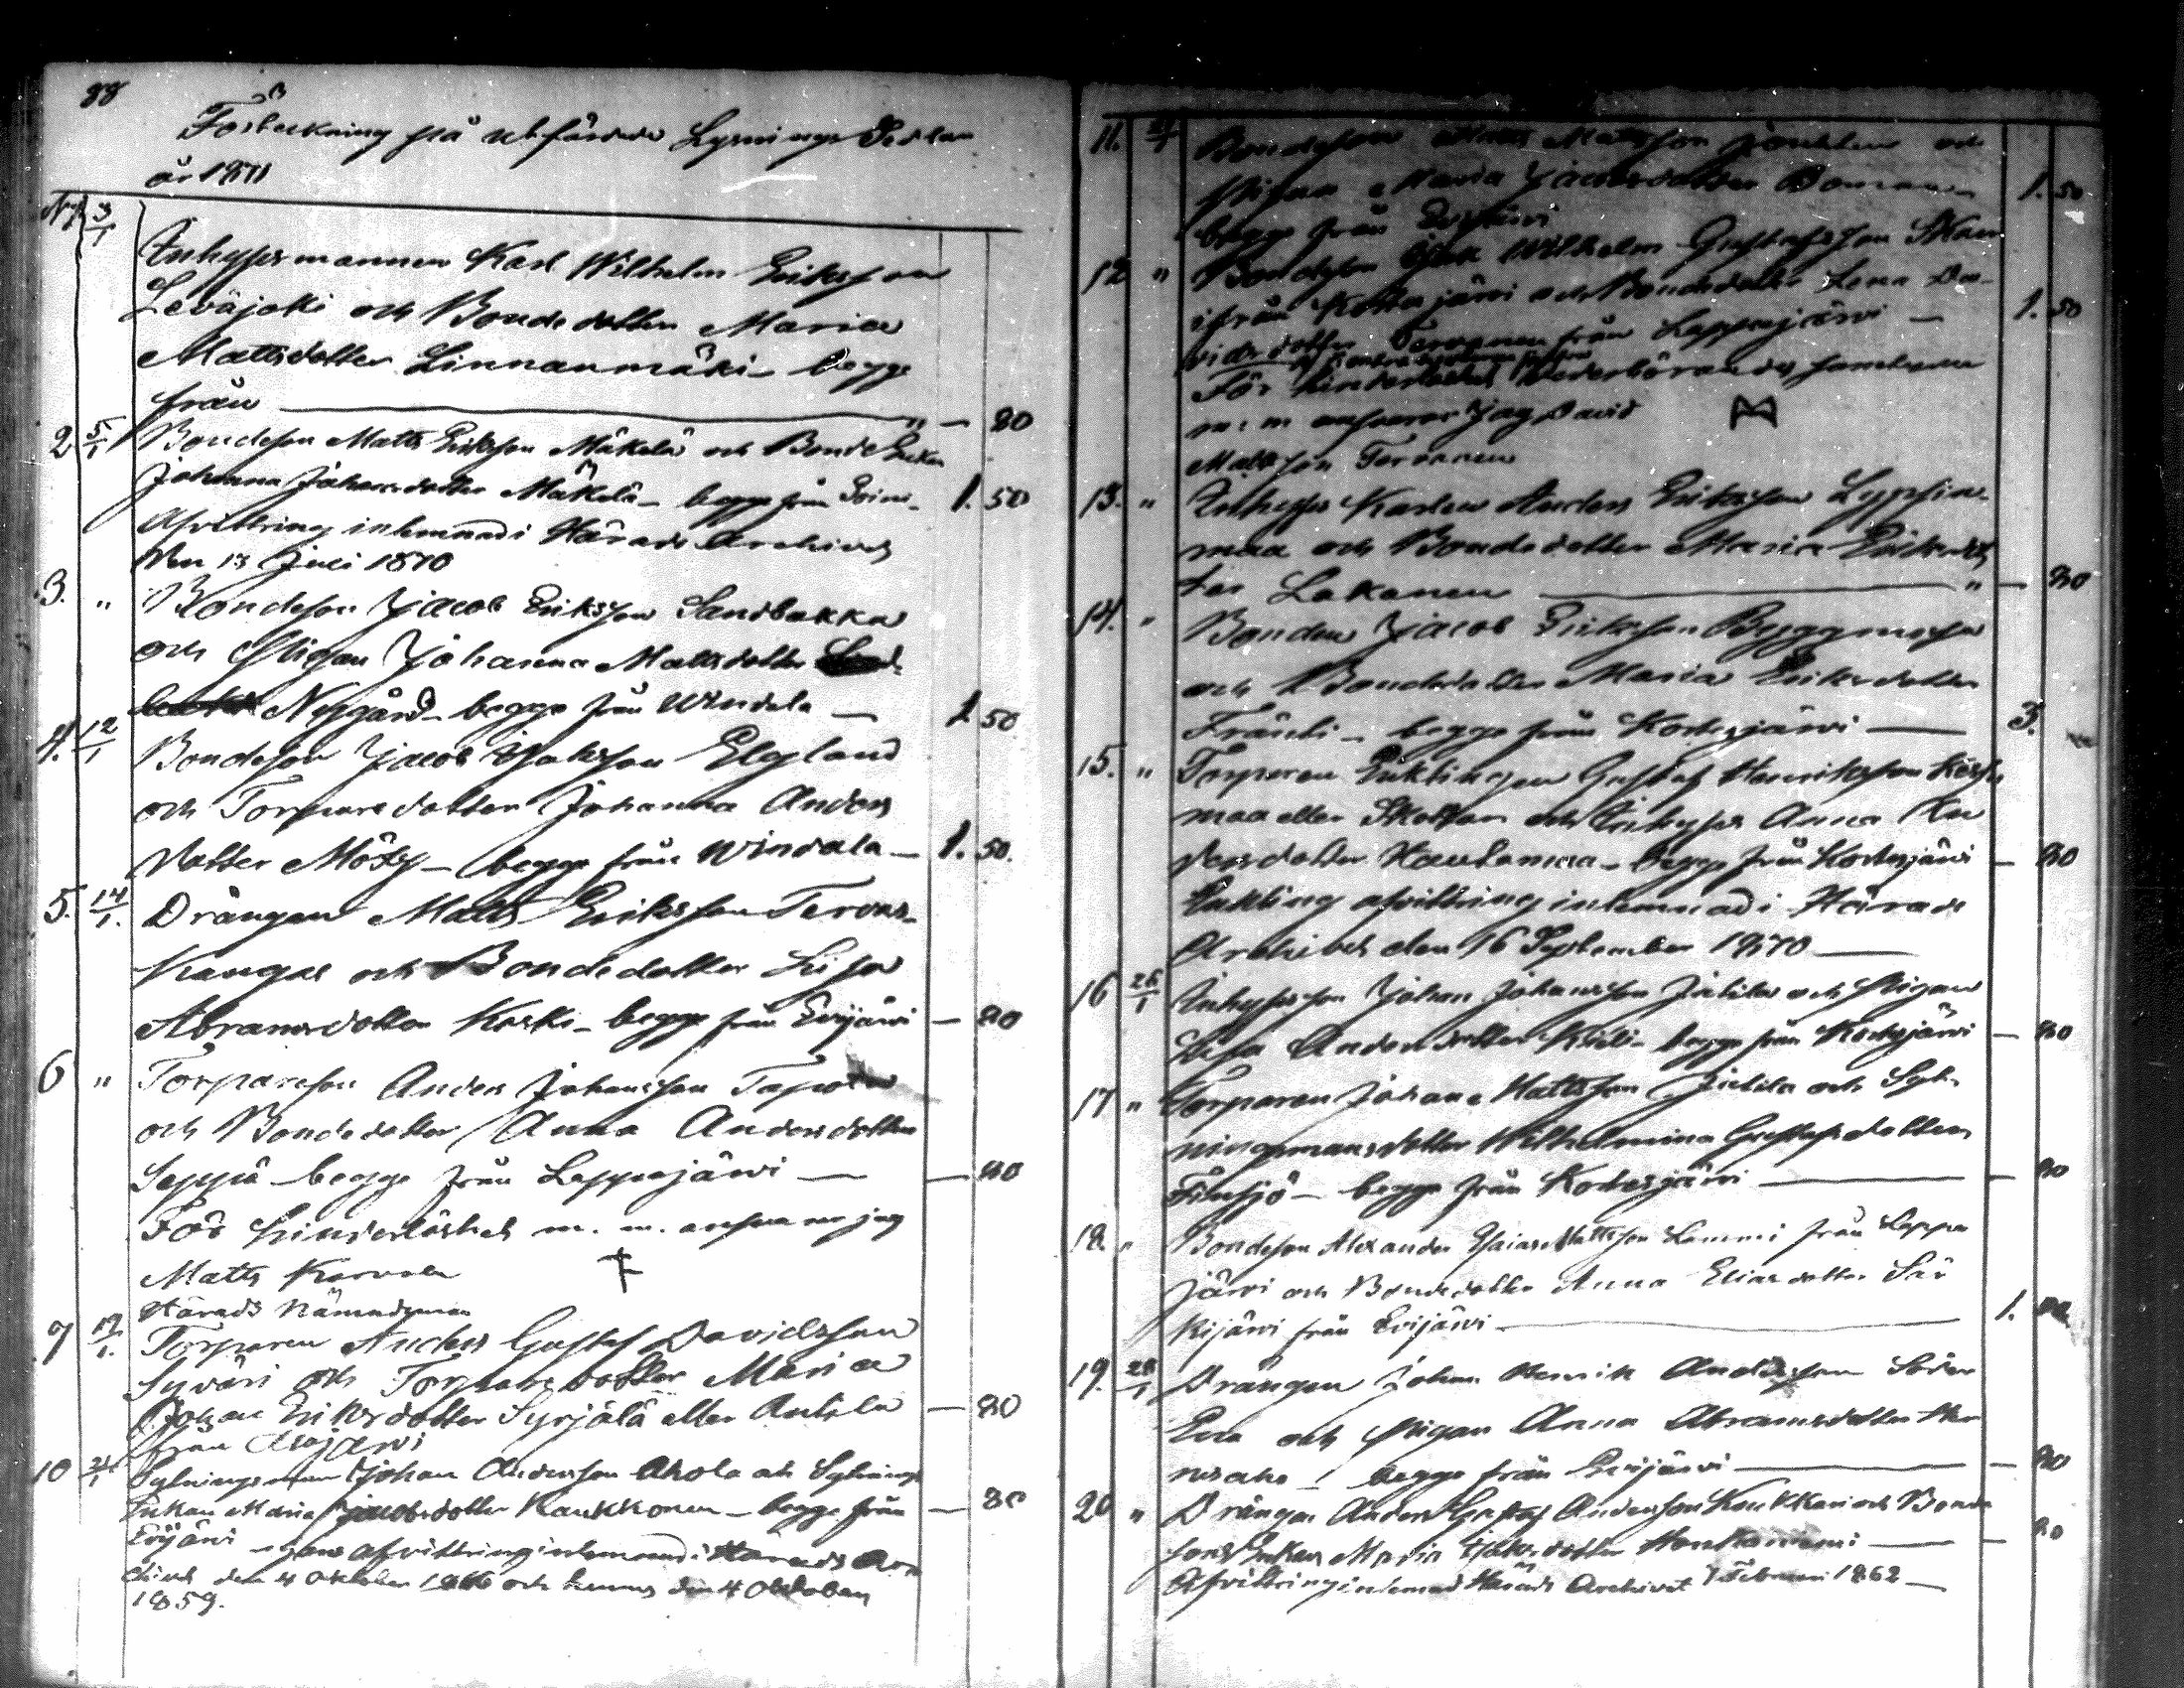 88
Förteckning på utfärdade Lysnings Sedlar
år 1871
N 1 3/1
Inhysesmannen Karl Wilhelm Eriksson
Leväjoki och Bondedotter Maria
Mattsdotter Linnanmäki - begge
från — " — 80
2 5/1 Bondeson Matts Eriksson Mäkelä och Bonde Enkan
Johanna Johansdotter Mäkelä - begge från 1. 50
Afvittring inlemnad i Härads Archivet
den 13 Juli 1870
3. " Bondeson Jacob Eriksson Sandbakka
och Pigan Johanna Mattsdotter
Nygård - begge från Windala — 1 50
4. 12/1 Bondeson Jacob Isaksson Elgland
och Torparedotter Johanna Anders
dotter Mötsy - begge från Windala — 1. 50.
5. 14/1. Drängen Matts Eriksson Tervas-
kangas och Bondedotter Lisa
Abramsdotter Koski - begge från Evijärvi — 80
6 " Torpareson Anders Johansson Tapola
och Bondedotter Anna Andersdotter
Seppä - begge från Lappajärwi — — 80
För hinderlöshet m. m. ansvarar jag
Matts Karvala
Härads Nämndeman
7 19/1. Torparen Anders Gustaf Davidsson
Syväri och Torparedotter Maria
Johan Eriksdotter Syrjälä eller Antila — 80
från
10 21/1 Sytningsman Johan Andersson Ahola och Sytnings
Enkan Maria Jacobsdotter Kaukkonen - begge från — 80
Evijärvi - afvittring inlemnad i Härads Ar
chivet den 4 Oktober 1866 och hennes den 4 Oktober
1859.
11. 21/1 Bondeson Matts Mattsson och
Pigan Maria Jacobsdotter — 1. 50
begge från Evijärvi
12 " Bondeson Wilhelm Gustafsson Skan
ifrån Kortesjärvi och Bondedotter Lena Da-
vidsdotter Tervonen från Lappajärvi — 1. 50
För hinderlöshet vederbörandes samtycke
m: m ansvarar jag David
Mattsson Tervonen
13. " Inhyses Karlen Anders Eriksson Lyypsin-
maa och Bondedotter Maria Eriksdot
ter Lakanen — " — 80
14. " Bonden Jacob Eriksson Byggmesta
och Bondedotter Maria Eriksdotter
Fränti - begge från Kortesjärvi — 3.
15. " Torparen Enklingen Gustaf Henriksson
maa eller och Inhyses Anna An
dersdotter Hautamaa - begge från Kortesjärvi — 80
Enkling afvittring inlemnad i Härads
Archivet den 16 September 1870 —
16 26/1 Inhysesson Johan Johansson Jutila och Pigan
Lisa Andersdotter Kiili - begge från Kortesjärvi — 80
17 " Torparen Johan Mattsson Jutila och Syt-
ningsmansdotter Wilhelmina Gustafsdotter
Finsjö - begge från Kortesjärvi — — 80
18. " Bondeson Alexander Esaias Mattsson Lammi från Lappa
järvi och Bondedotter Anna Eliasdotter Sär
kijärvi från Evijärvi — 1.
19. 28/1 Drängen Johan Henrik Andersson Söder
Ena och Pigan Anna Abramsdotter Her
nesaho - begge från Evijärvi — — 80
20 " Drängen Anders Gustaf Andersson Kaukkari och Bonde
sons Enkan Maria dotter Honkaniemi — — 80
Afvittring inlemnad Härads Archivet 7 Februari 1862 —